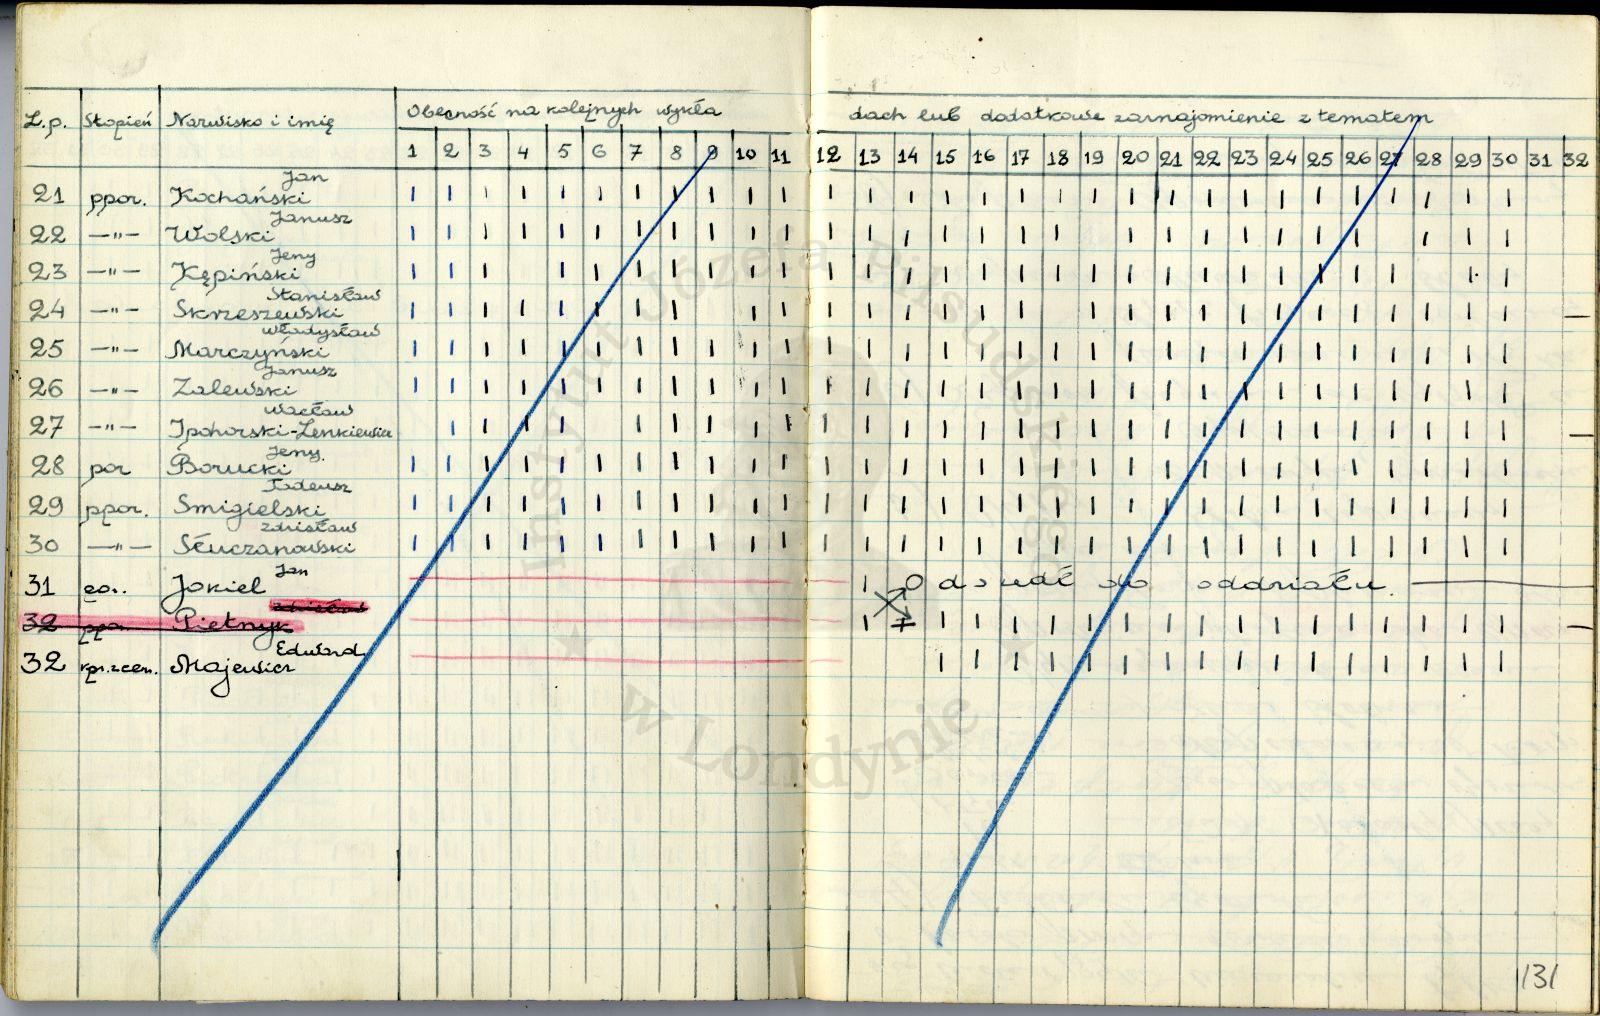 L.p. Stopień Nazwisko i imię Obecność na kolejnych wykła dach lub dodatkowe zaznajomienie z tematem
1 2 3 4 5 6 7 8 9 10 11 12 13 14 15 16 17 18 19 20 21 22 23 24 25 26 27 28 29 30 31 32
Jan
21 ppor. Kochański
Janusz
22 —"— Wolski
Jerzy
23 —"— Kępiński
Stanisław
24 —"— Skrzeszewski
Władysław
25 —"— Marczyński
Janusz
26 —"— Zalewski
Wacław
27 —"— Ipohorski-Lenkiewicz
Jerzy
28 por Borucki
Tadeusz
29 ppor. Smigielski
Zdzisław
30 —"— Słuczanowski
Jan
31 Jokiel odszedł do oddziału.
Zdzisław
32 Pietnyk
Edward
32 Majewicz
Instytut Józefa Piłsudskiego
w Londynie
131